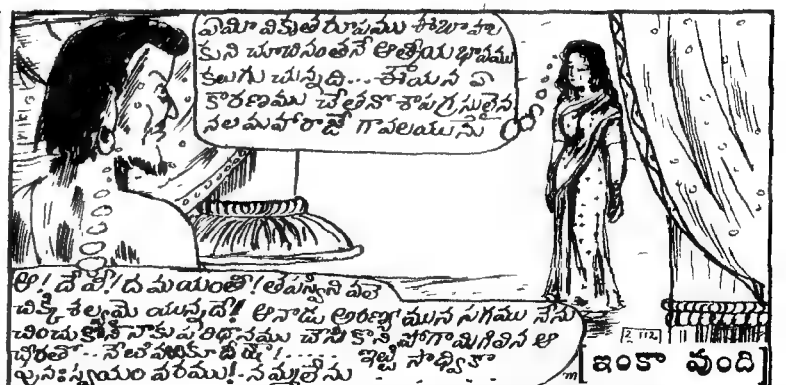 ఏమీ వికృత రూపము ఈ బాహు
కుని చూచినంతనే ఆత్మీయ భావము
కలుగు చున్నది... ఈయన ఏ
కారణము చేతనో శాపగ్రస్తులైన
నల మహారాజే గావలయును
ఆ! దేవీ! దమయంతీ! తపస్విని వలె
చిక్కి శల్యమై యున్నదే! ఆనాడు అరణ్యమున సగము నేను
చించుకొని నాకు పరిధానము చేసి కొని పోగా మిగిలిన ఆ
చీరతో.. నేటి వరకూ దీక్ష!..... ఇట్టి సాధ్వికా
పునఃస్వయం వరము!. నమ్మలేను
[ఇంకా వుంది]